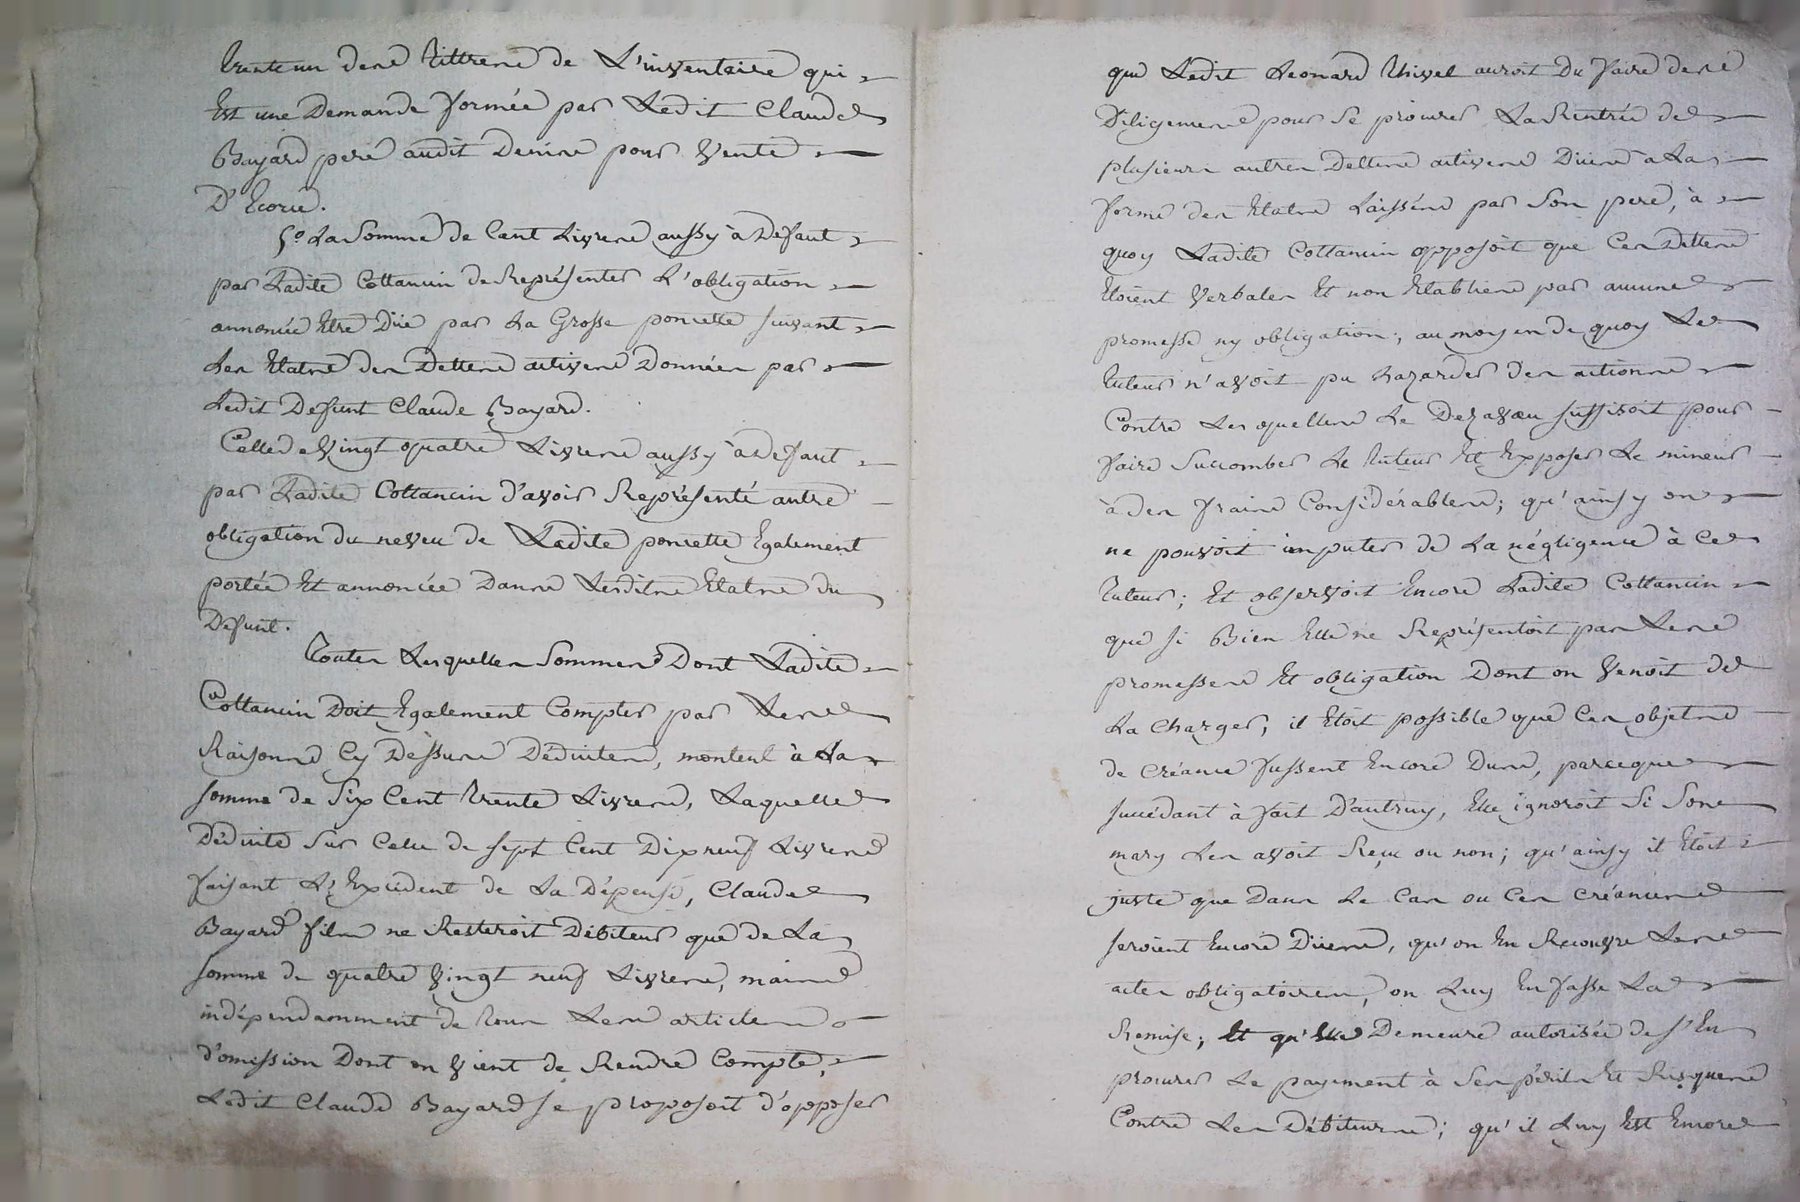 trente un des tittres de L'inventaire qui
Est une Demande formée par Ledit Claude
Bayard pere audit Denis pour Vente
D'Ecorce.
5.º La Somme de Cent Livres aussy à Defaut
par Ladite Cottancin de Représenter L'obligation
annoncée Etre Düe par La Grosse poncette suivant
Les Etats des Dettes actives Données par
Ledit Defunt Claude Bayard.
Celle de Vingt quatre Livres aussy à Defaut
par Ladite Cottancin d'avoir Représenté autre
obligation du neveu de Ladite poncette Egalement
portée Et annoncée Dans Lesdits Etats du
Défunt.
Toutes Lesquelles Sommes Dont Ladite
Cottancin Doit Egalement Compter par Les
Raisons Cy Dessus Déduites, montent à La
somme de Six Cent trente Livres, Laquelle
Déduite Sur Celle de Sept Cent Dix neuf Livres
faisant L'Excédent de La Dépense, Claude
Bayard fils ne Resteroit Débiteur que de La
somme de quatre Vingt neuf Livres, mais
indépendamment de tous Les articles
d'omission Dont on Vient de Rendre Compte,
Ledit Claude Bayard se proposoit d'opposer
que Ledit Leonard Thivel auroit Du faire des
Diligences pour Se procurer La Rentrée de
plusieurs autres Dettes actives Düies a La
forme des Etats Laissés par Son pere, à
quoy Ladite Cottancin opposoit que Ces Dettes
Etoient Verbales Et non Etablies par aucune
promesse ny obligation; au moyen de quoy Le
tuteur n'avoit pu hazarder des actions
Contre Lesquelles Le Dezaveu suffisoit pour
faire Succomber Le tuteur Et Exposer Le mineur
à des frais Considérables; qu'ainsy on
ne pouvoit imputer de La négligence à Ce
tuteur; Et observoit Encore Ladite Cottancin
que si Bien Elle ne Représentoit pas Les
promesses Et obligation Dont on Venoit de
La Charger, il Etoit possible que Ces objets
de Créance fussent Encore Dus, parceque
succédant à fait D'autruy, Elle ignoroit Si Son
mary Les avoit Reçu ou non; qu'ainsy il Etoit
juste que Dans Le Cas ou Ces Créances
seroient Encore Düies, qu'on En Recouvre Les
actes obligatoires, on Luy En fasse La
Remise; Et qu'Elle Demeure autorisée de S'En
procurer Le payement à Ses périls Et Risques
Contre Les Débiteurs; qu'il Luy Est Encore